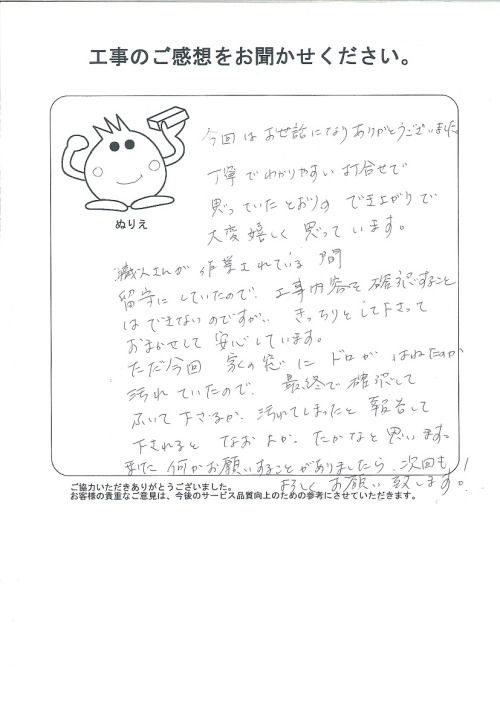 工事のご感想をお聞かせください。
今回はお世話になりありがとうございました。
丁寧でわかりやすい打合せで
思っていたとおりの でき上がりで
大変嬉しく思っています。
ぬりえ
職人さんが 作業されている 間
留守にしていたので、工事内容を確認すること
はできないのですが、きっちりとして下さって
おまかせして 安心しています。
ただ今回 家の窓に ドロが はねたのか
汚れていたので、最終で確認して
ふいて下さるか、汚れてしまったと 報告して
下されると なおよかったかなと思います。
また何かお願いすることがありましたら、次回も
よろしくお願い致します!
ご協力いただきありがとうございました。
お客様の貴重なご意見は、今後のサービス品質向上のための参考にさせていただきます。